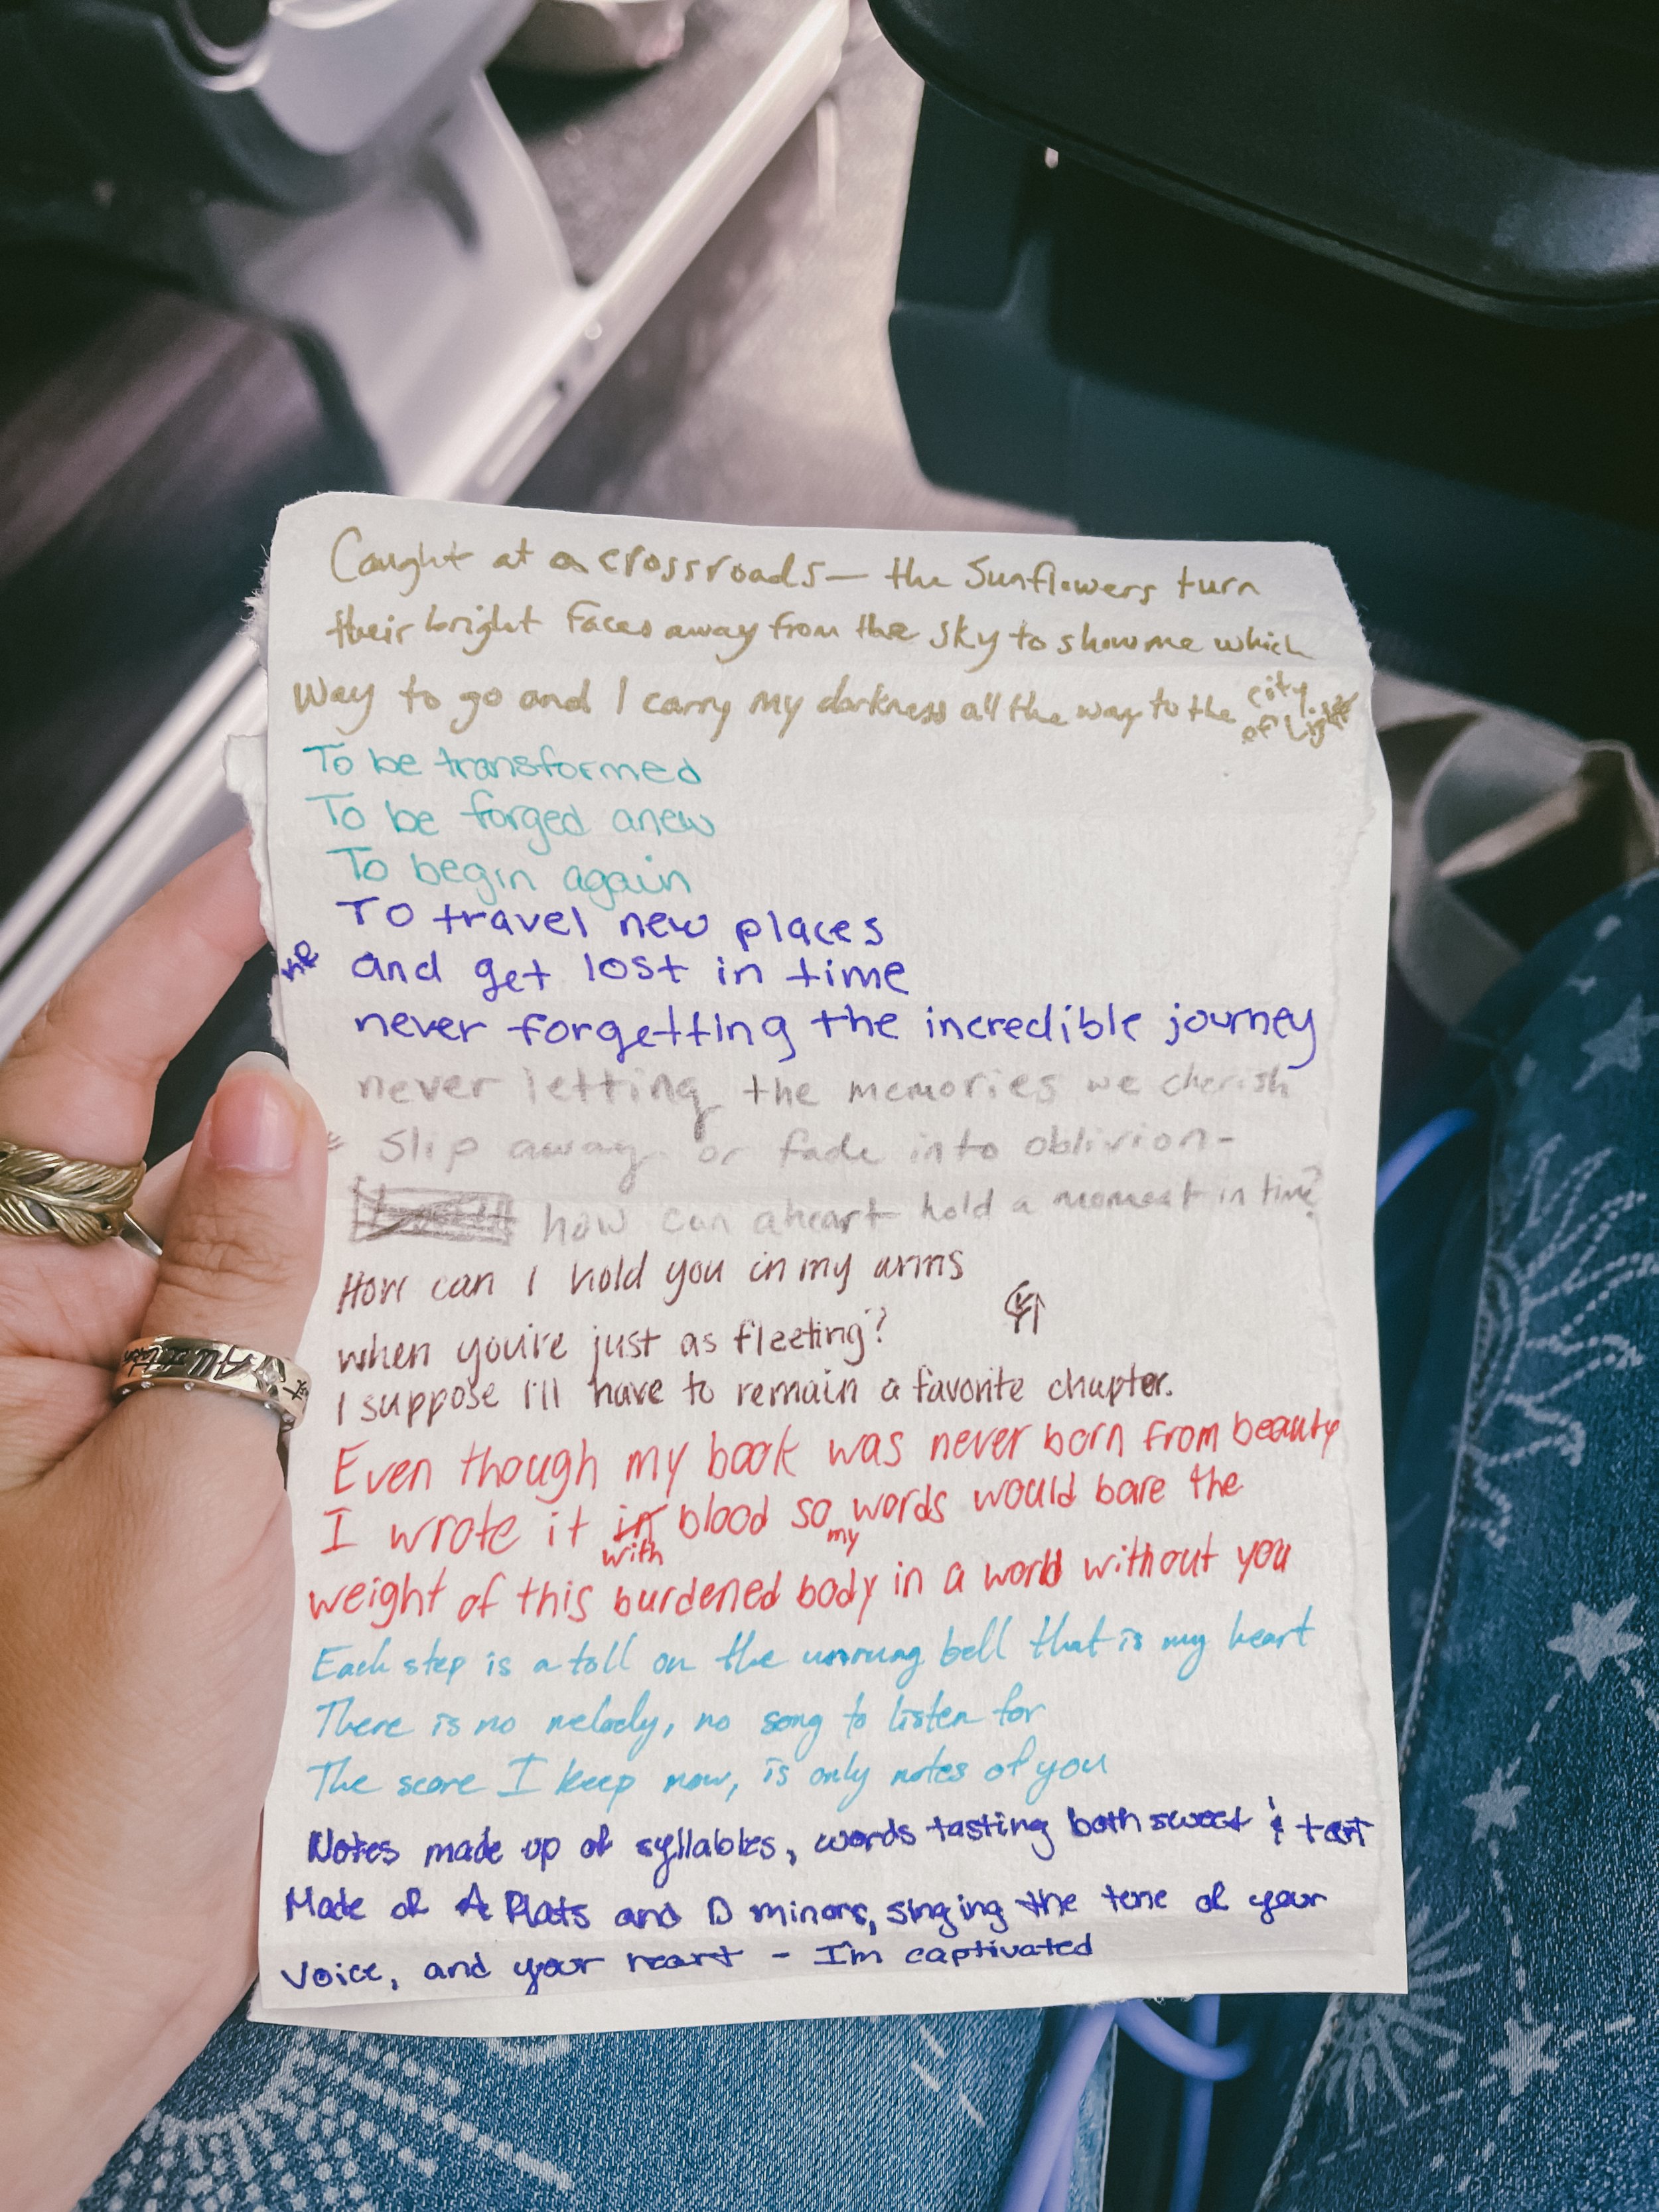 Caught at a crossroads— the Sunflowers turn
their bright faces away from the sky to show me which
way to go and I carry my darkness all the way to the city of Light.
To be transformed
To be forged anew
To begin again
To travel new places
and get lost in time
never forgetting the incredible journey
never letting the memories we cherish
slip away or fade into oblivion-
how can a heart hold a moment in time?
How can I hold you in my arms
when you're just as fleeting?
I suppose I'll have to remain a favorite chapter.
Even though my book was never born from beauty
I wrote it with blood so my words would bare the
weight of this burdened body in a world without you
Each step is a toll on the unrung bell that is my heart
There is no melody, no song to listen for
The score I keep now, is only notes of you
Notes made up of syllables, words tasting both sweet & tart
Made of A flats and D minors, singing the tone of your
voice, and your heart - I'm captivated